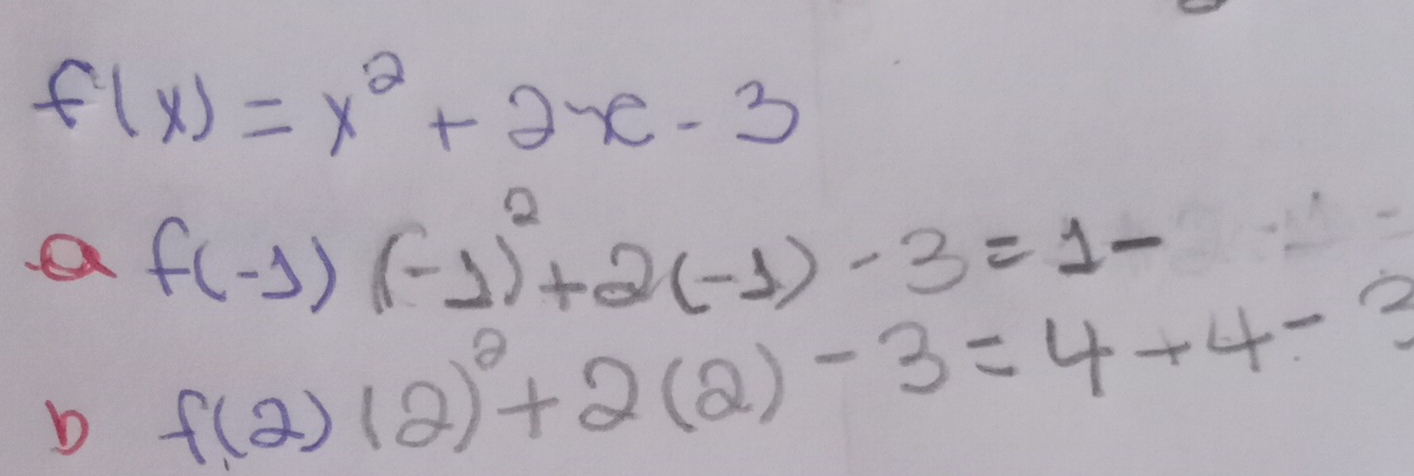 f(x) = x² + 2x - 3
a f(-1) (-1)² + 2(-1) - 3 = 1 -
b f(2) (2)² + 2(2) - 3 = 4 + 4 - 3